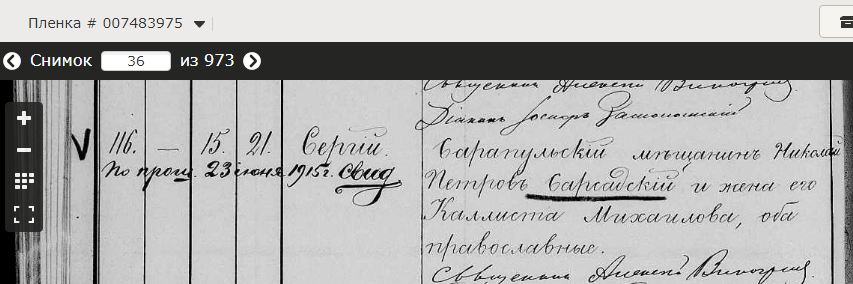 Пленка # 007483975
Снимок 36 из 973
Священникъ Алексѣй Виноград
Діаконъ
116. — 15. 21. Сергій. Сарапульскій мѣщанинъ Николай
По прош. 23 іюня 1915 г. свид. Петровъ Сарсадскій и жена его
Каллиста Михаилова, оба
православные.
Священникъ Алексѣй Виноград